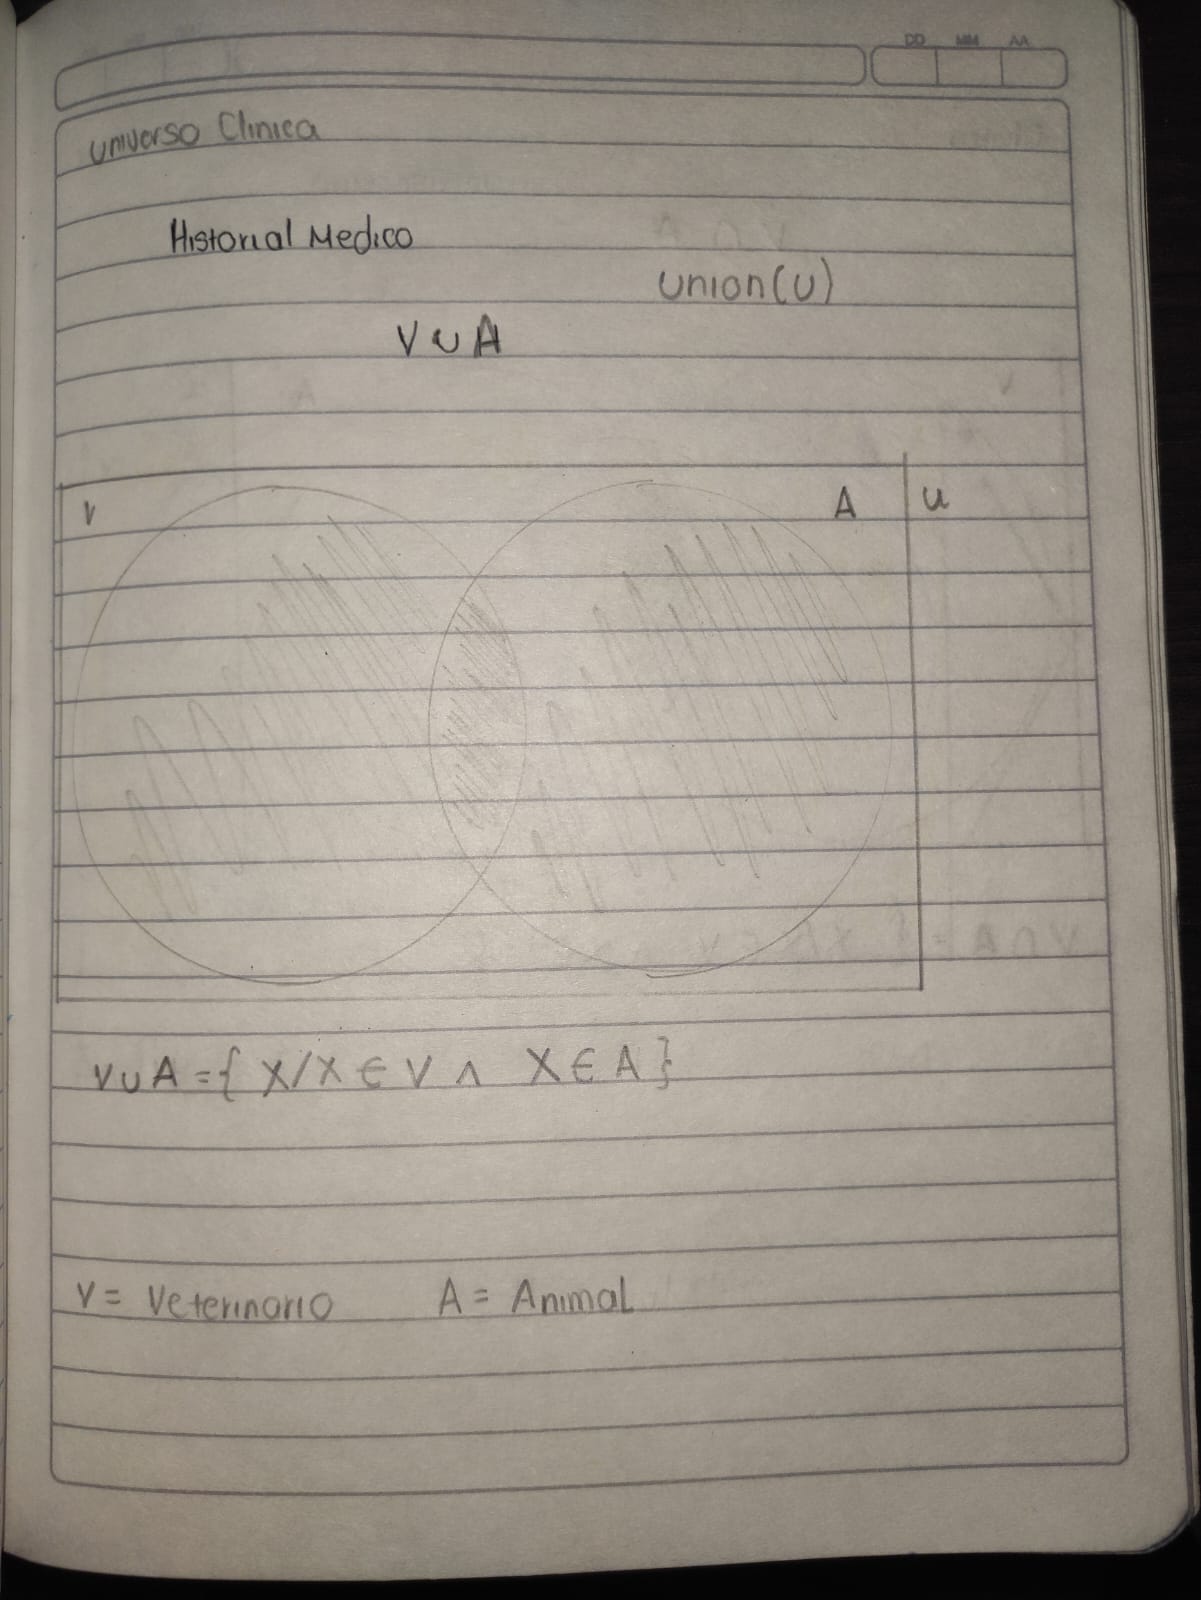 DD MM AA
Universo Clinica
Historial Medico
Union (U)
V U A
V A U
V U A = { X/X ∈ V ∧ X ∈ A }
V = Veterinario A = Animal